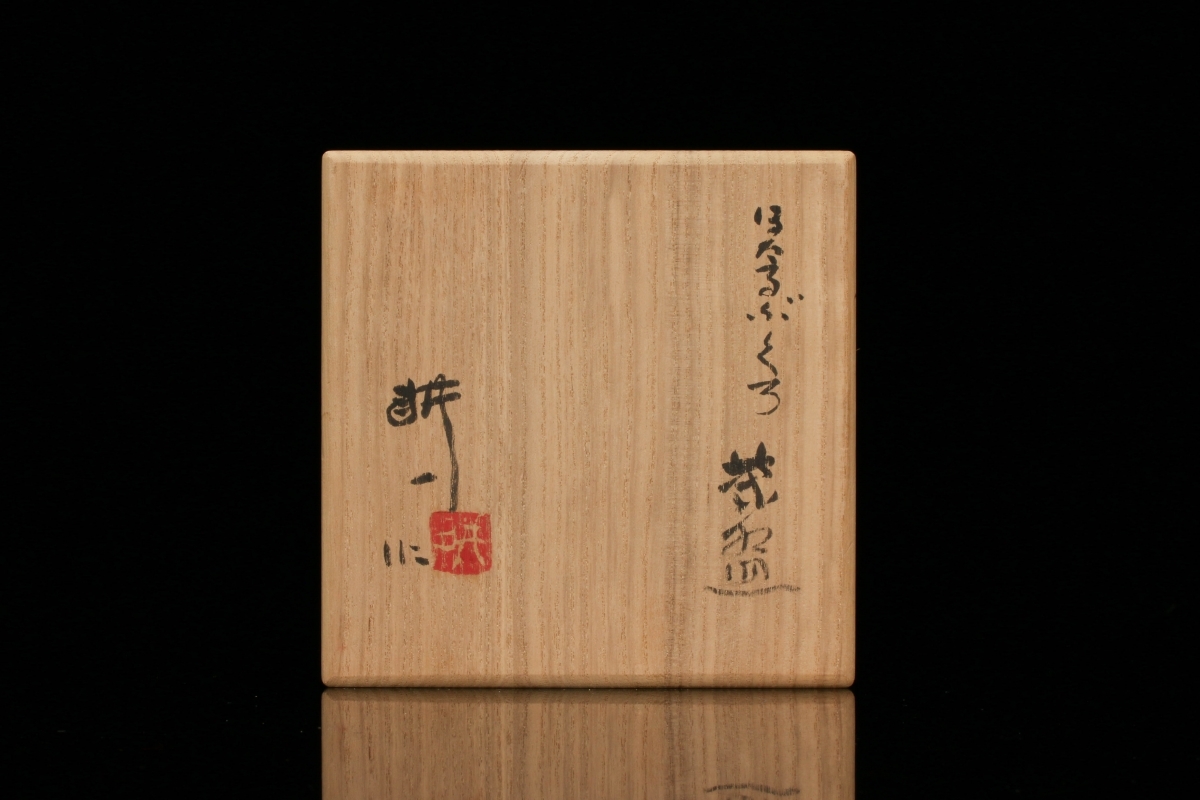 ほたるぶくろ 茶盌
耕一
作